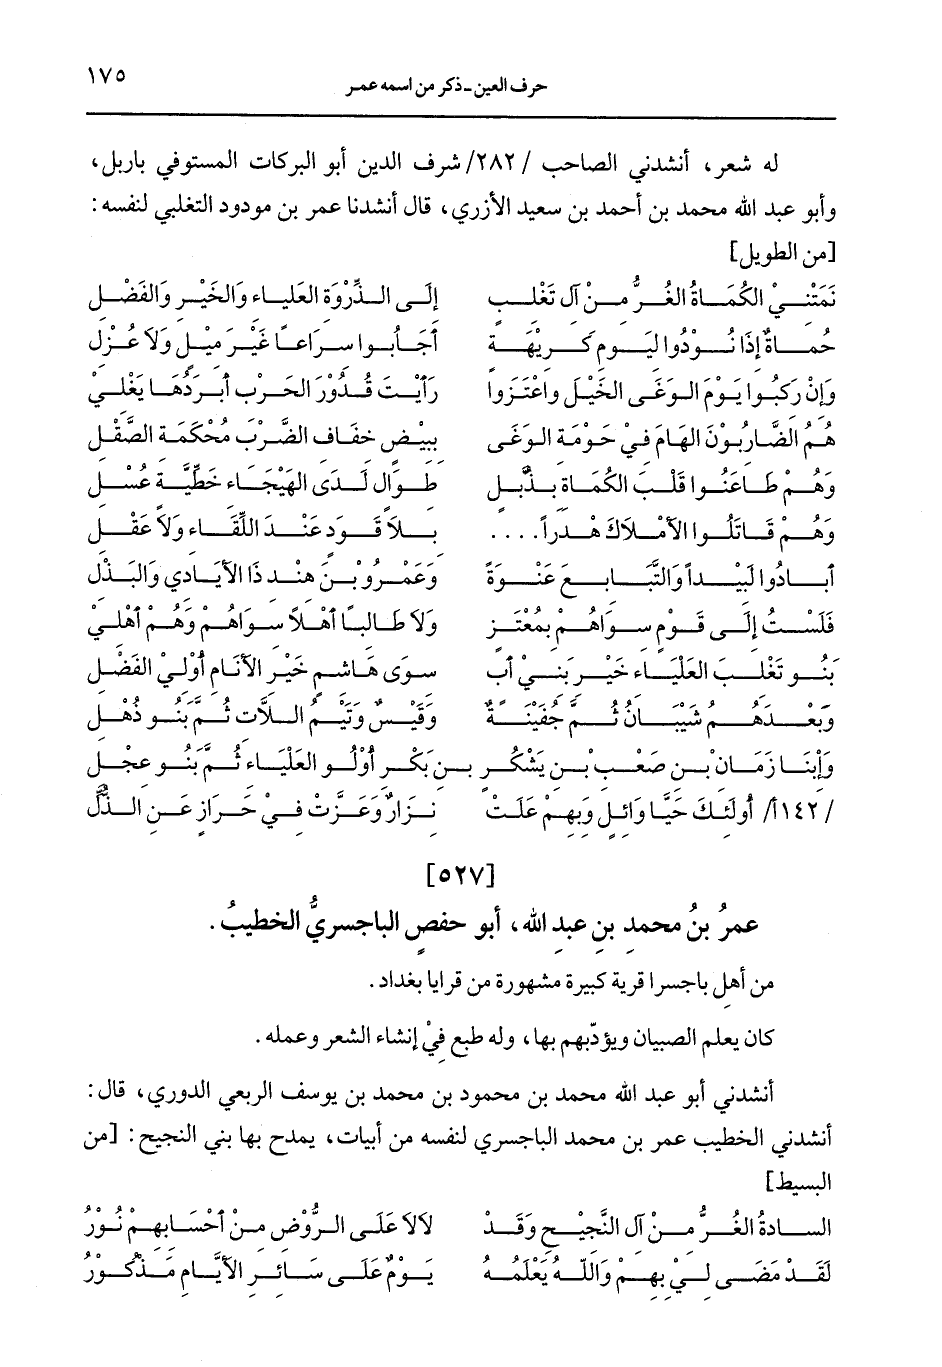 حرف العين - ذكر من اسمه عمر ١٧٥
له شعر، أنشدني الصاحب /٢٨٢/ شرف الدين أبو البركات المستوفي باربل،
وأبو عبد الله محمد بن أحمد بن سعيد الأزري، قال أنشدنا عمر بن مودود التغلبي لنفسه:
[من الطويل]
نَمَتْنِيْ الكُمَاةُ الغُرُّ مِنْ آلِ تَغْلِبٍ إلَى الذِّرْوَةِ العَلْيَاءِ وَالخَيْرِ وَالفَضْلِ
حُمَاةٌ إذَا نُوْدُوا لِيَوْمِ كَرِيْهَةٍ أجَابُوا سِرَاعاً غَيْرَ مِيْلٍ وَلاَ عُزْلِ
وَإنْ رَكِبُوا يَوْمَ الوَغَى الخَيْلَ وَاعْتَزَوا رَأيْتَ قُدُوْرَ الحَرْبِ أبْرَدُهَا يَغْلِي
هُمُ الضَّارِبُوْنَ الهَامَ فِيْ حَوْمَةِ الوَغَى بِبِيْضٍ خِفَافِ الضَّرْبِ مُحْكَمَةِ الصَّقْلِ
وَهُمْ طَاعَنُوا قَلْبَ الكُمَاةِ بِذُبَّلٍ طِوَالٍ لَدَى الهَيْجَاءِ خَطِّيَّةٍ عُسْلِ
وَهُمْ قَاتَلُوا الأمْلاَكَ هْدراً.... بِلاَ قَوَدٍ عِنْدَ اللِّقَاءِ وَلاَ عَقْلِ
أبَادُوا لَبِيْداً وَالتَّبَابِعَ عَنْوَةً وَعَمْرو بْنَ هِنْدٍ ذَا الأيَادِي وَالبَذْلِ
فَلَسْتُ إلَى قَوْمٍ سِوَاهُمْ بِمُعْتَزٍ وَلاَ طَالِباً أهْلاً سِوَاهُمْ وَهُمْ أهْلِي
بَنُو تَغْلِبَ العَلْيَاءِ خَيْرِ بَنِيْ أبٍ سِوَى هَاشِمٍ خَيْرِ الأنَامِ أُوْلِيْ الفَضْلِ
وَبَعْدَهُمُ شَيْبَانُ ثُمَّ جُفَيْنَةٌ وَقَيْسٌ وَتَيْمُ اللاَّتِ ثُمَّ بَنُو ذُهْلِ
وَإبْنَا زِمَانِ بِن صَعْبِ بِن يَشْكُرِ بِن بَكْرِ أُوْلُو العَلْيَاءِ ثُمَّ بَنُو عِجْلِ
/١٤٢أ/ أُولَئِكَ حَيَّا وَائِلٍ وَبِهِمْ عَلَتْ نِزَارٌ وَعَزَّتْ فِيْ حِرَازٍ عَنِ الذُّلِّ
[٥٢٧]
عمرُ بنُ محمدِ بنِ عبدِ اللهِ، أبو حفصٍ الباجسريُّ الخطيبُ.
من أهلِ باجسرا قرية كبيرة مشهورة من قرايا بغداد.
كان يعلمِ الصبيان ويؤدّبهم بها، وله طبع فيْ إنشاء الشعر وعمله.
أنشدني أبو عبد الله محمد بن محمود بن محمد بن يوسف الربعي الدوري، قال:
أنشدني الخطيب عمر بن محمد الباجسري لنفسه من أبيات، يمدح بها بني النجيح: [من
البسيط]
السادةُ الغُرُّ مِنْ آلِ النَّجِيْحِ وَقَدْ لاَلاَ عَلَى الرَّوْضِ مِنْ أحْسَابِهِمْ نُوْرُ
لَقَدْ مَضَى لِيْ بِهِمْ وَاللهُ يَعْلَمُهُ يَوْمٌ عَلَى سَائِرِ الأيَّامِ مَذْكُوْرُ